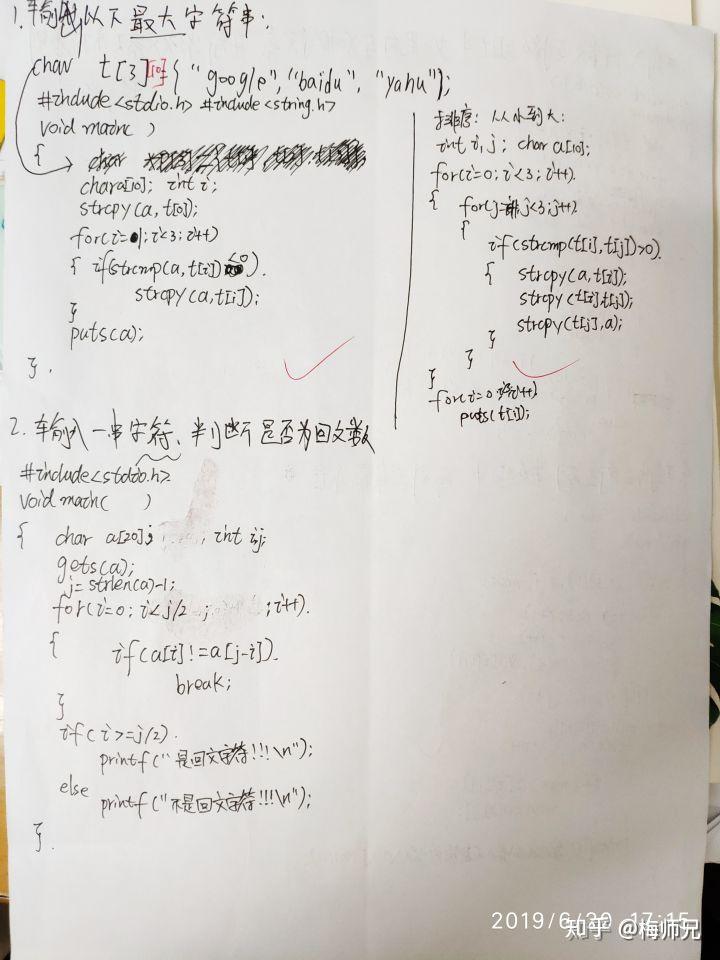 1. 输出以下最大字符串:
char t[3][10]={"google","baidu","yahu"};
#include<stdio.h> #include<string.h>
void main( )
{
char a[10]; int i;
strcpy(a, t[0]);
for(i=1; i<3; i++)
{ if(strcmp(a, t[i])<0)
strcpy(a,t[i]);
}
puts(a);
}.
排序: 从小到大:
int i,j; char a[10];
for(i=0; i<3; i++)
{ for(j= j<3; j++)
{
if(strcmp(t[i],t[j])>0)
{ strcpy(a,t[i]);
strcpy(t[i],t[j]);
strcpy(t[j],a);
}
}
}
for(i=0 i++)
puts(t[i]);
2. 输入一串字符、判断是否为回文数
#include<stdio.h>
void main( )
{ char a[20]; int i,j;
gets(a);
j= strlen(a)-1;
for(i=0; i<j/2 ; i++).
{ if(a[i]!=a[j-i]).
break;
}
if(i>=j/2).
printf("是回文字符!!!\n");
else
printf("不是回文字符!!!\n");
}.
2019/6/20 17:15
知乎 @梅师兄